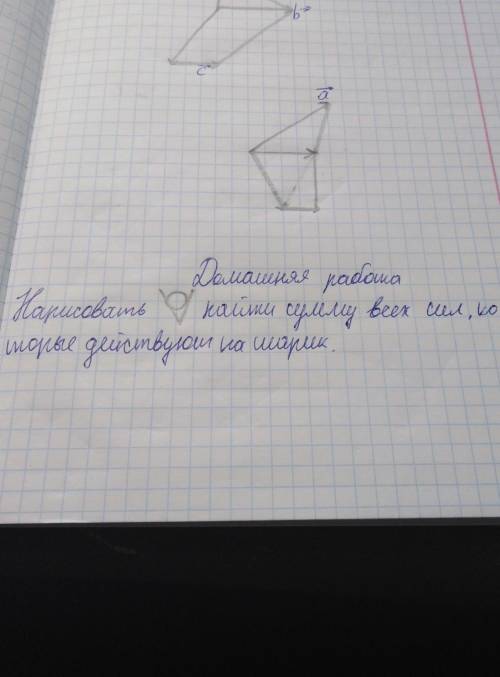 b
c
a
Домашняя работа
Нарисовать найти сумму всех сил, ко
торые действуют на шарик.